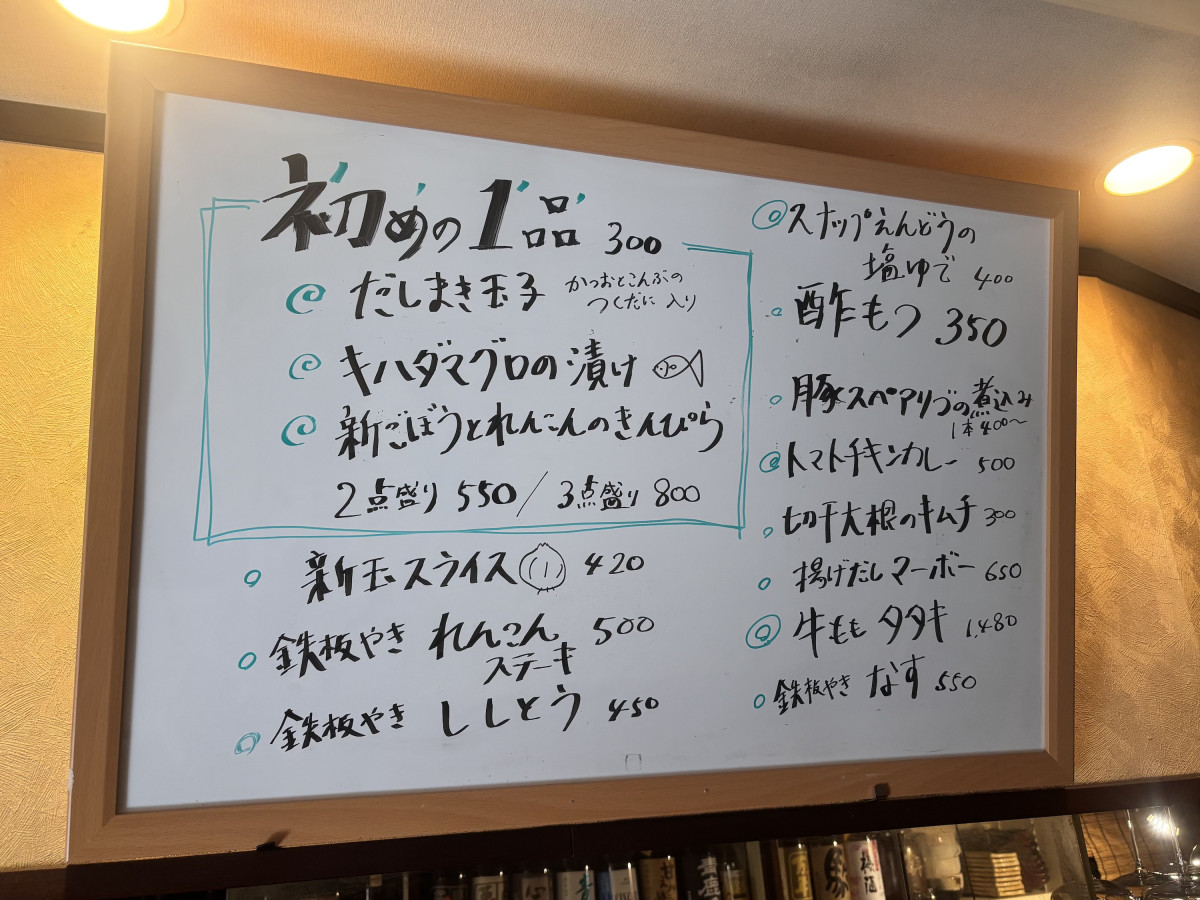 初めの1品 300
だしまき玉子 かつおとこんぶの
つくだに入り
キハダマグロの漬け
新ごぼうとれんこんのきんぴら
2点盛り 550/3点盛り 800
新玉スライス 420
鉄板やき れんこん 500
ステーキ
鉄板やき ししとう 450
スナップえんどうの
塩ゆで 400
酢もつ 350
豚スペアリブの煮込み
1本400〜
トマトチキンカレー 500
切干大根のキムチ 300
揚げだしマーボー 650
牛もも タタキ 1,480
鉄板やき なす 550